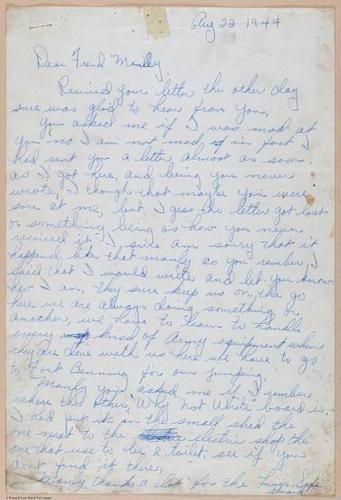 Aug 22 1944
Dear Frend Manley
Recived your letter the other day
sure was glad to hear from you,
You asked me if I was mad at
you no I am not mad in fact I
had sent you a letter almost as soon
as I got here, and being you never
wrote, I though that maybe you were
sore at me, but I gess the letter got lost
or something being as how you never
recieved it, I side am sorry that it
happend like that manly as you rember, I
said that I would write and let you know
how I am, they sure keep us on the go
here we are always doing something or
another, we have to learn to handle
every kind of Army equipment when
they are done with us here we have to go
to Fort Benning for our jumping
Manly you asked me if I rember
where the other, "Why not White board is,
I had put it in the small shed the
one next to the electric shop the
one that use to be a toilet, see if you
dont find it there,
Manly thanks a lot for the